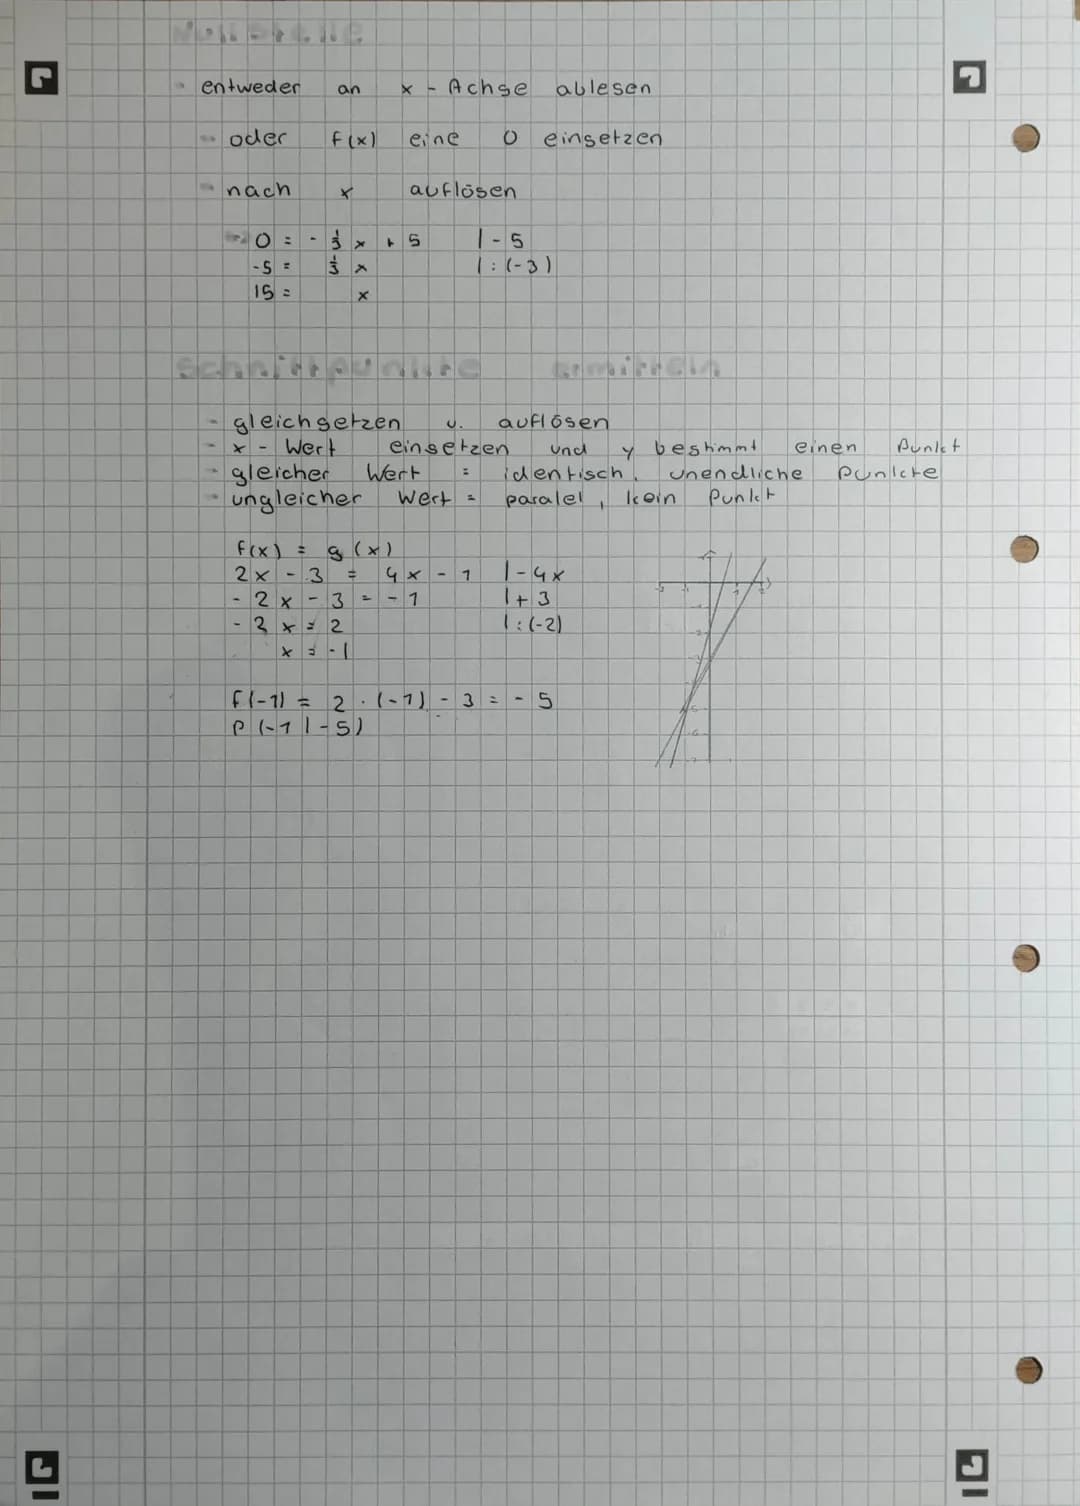 Nullstelle
- entweder an x - Achse ablesen
- oder f(x) eine 0 einsetzen
- nach x auflösen
0 = - 1/3 x + 5 | - 5
-5 = 1/3 x | : (-3)
15 = x
Schnittpunkte ermitteln
- gleichsetzen u. auflösen
- x - Wert einsetzen und y bestimmt einen Punkt
- gleicher Wert = identisch, unendliche Punkte
- ungleicher Wert = paralel, kein Punkt
f(x) = g(x)
2x - 3 = 4x - 1 | - 4x
- 2x - 3 = - 1 | + 3
- 2x = 2 | : (-2)
x = - 1
f(-1) = 2 · (-1) - 3 = - 5
P (-1 | - 5)